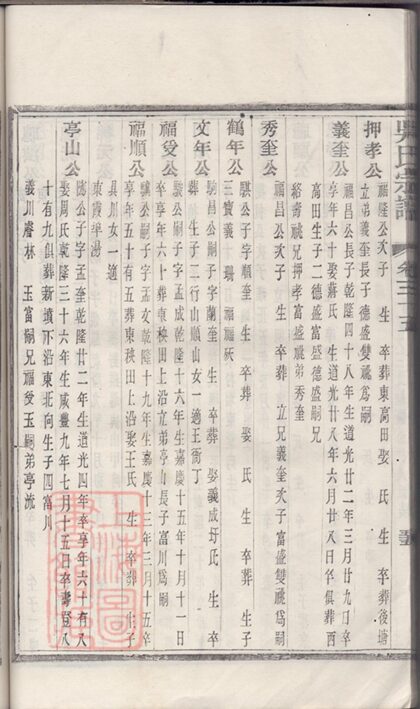 吳氏宗譜 卷三 五
押孝公 福隆公次子 生 卒葬東高田 娶 氏 生 卒葬後塘
立弟義奎長子德盛雙祧爲嗣
義奎公 福昌公長子乾隆四十八年生道光廿二年三月廿九日卒
享年六十娶蔣氏 生道光廿八年六月廿八日卒俱葬西
高田生子二德盛富盛德盛嗣兄
紹壽祧兄押孝富盛祧弟秀奎
秀奎公 福昌公次子 生 卒葬 立兄義奎次子富盛雙祧爲嗣
鶴年公 騏公子字順奎生 卒葬 娶 氏 生 卒葬 生子
三寶義 珊 福福
文年公 駒昌公子字蘭奎生 卒葬 娶義成圩氏 生 卒
葬 生子二行山順山女一適王衙丁
福受公 駿公嗣子字孟成乾隆十六年生嘉慶十五年十月十一日
卒享年六十葬東秧田上沿立弟亭山長子富川爲嗣
福順公 驥公嗣子字孟文乾隆十九年生嘉慶十三年三月十五卒
享年五十有五葬東秧田上沿娶王氏 生 卒葬 生子
具川女一適
東霞華湯
亭山公 公子字孟奎乾隆廿二年生道光四年卒享年六十有八
娶周氏乾隆三十六年生咸豐九年七月十五日卒壽登八
十有九俱葬新墳下沿東北向生子四富川
義川睿林 玉富嗣兄福受玉嗣弟亭流